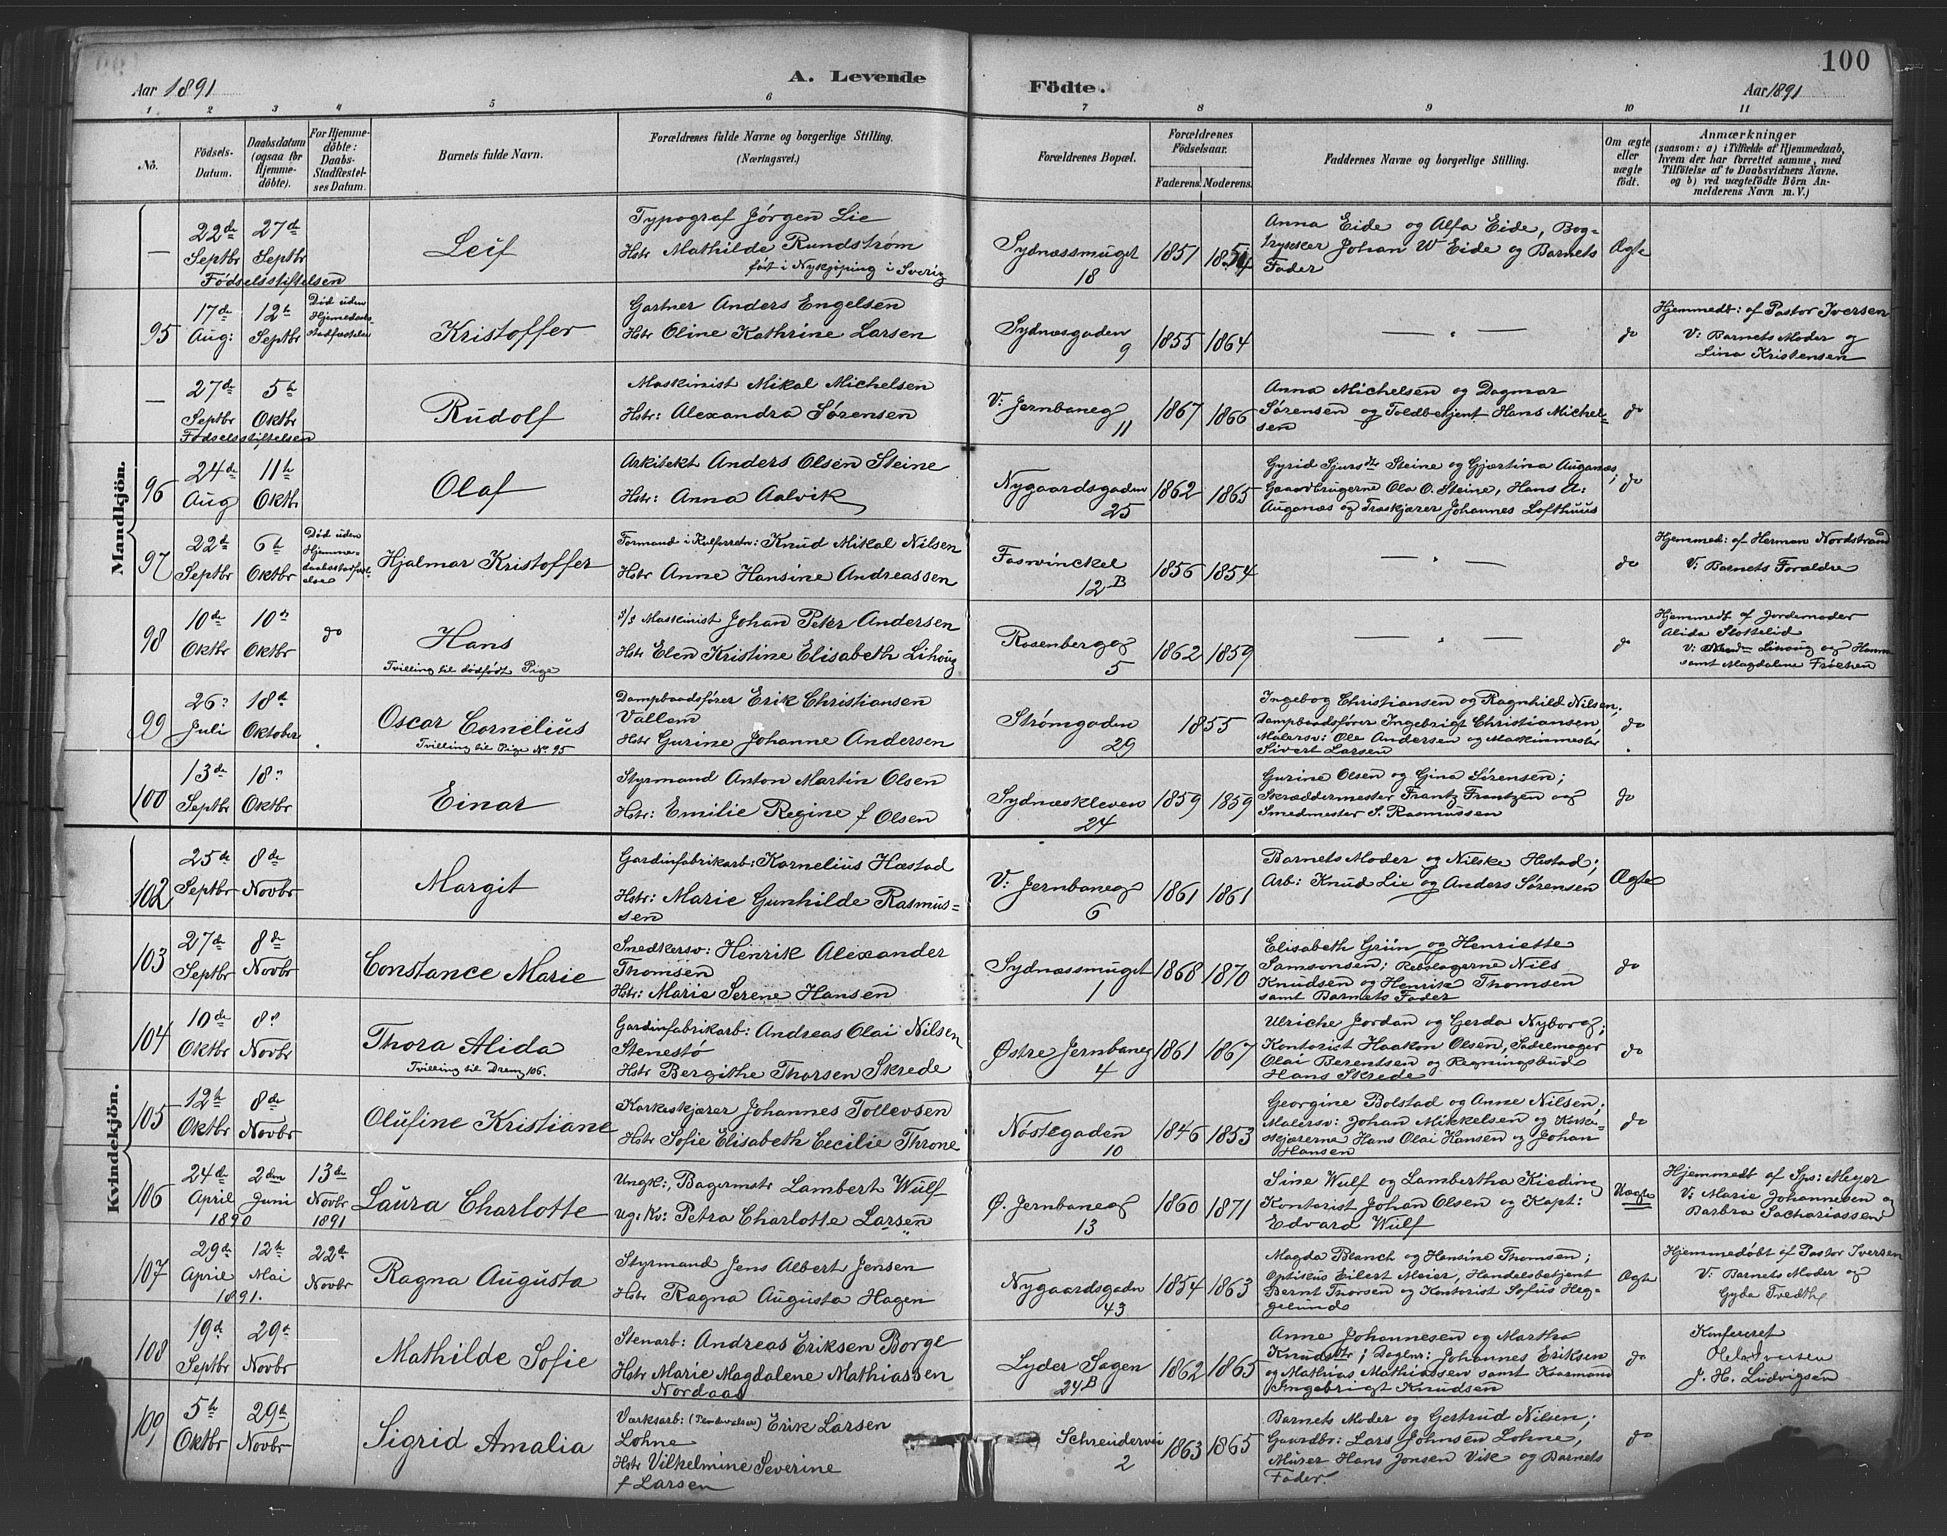 100
Aar 1891
A. Levende
Födte.
Aar 1891
1 2 3 4 5 6 7 8 9 10 11
No.
Födsels-
Datum.
Daabsdatum
(ogsaa for
Hjemme-
döbte).
For Hjemme-
döbte:
Daabs-
Stadfæstel-
ses Datum.
Barnets fulde Navn.
Forældrenes fulde Navne og borgerlige Stilling.
(Næringsvei.)
Forældrenes Bopæl.
Forældrenes
Födselsaar.
Faderens. Moderens.
Faddernes Navne og borgerlige Stilling.
Om ægte
eller
uægte
födt.
Anmærkninger
(saasom: a) i Tilfælde af Hjemmedaab,
hvem der har forrettet samme, med
Tilföielse af to Daabsvidners Navne.
og b) ved uægtefödte Börn An-
melderens Navn m. V.)
Mandkjön.
— 22de Septbr 27de Septbr
Fødselsstiftelsen
Leif
Typograf Jørgen Lie
Hstr Mathilde Rundstrøm
født i Nykjøping i Sverig
Sydnæssmuget
18
1851 1854
Anna Eide og Alfa Eide, Bog-
trykker Johan W Eide og Barnets
Fader
Ægte
95 17de Aug: 12te Septbr
Død uden
Hjemedaabs
stadfæstelse
Kristoffer
Gartner Anders Engelsen
Hstr Oline Kathrine Larsen
Sydnæsgaden
9
1855 1864
— " —
do
Hjemmedt: af Pastor Iversen
V: Barnets Moder og
Lina Kristensen
— 27de Septbr 5te Oktbr
Fødselsstiftelsen
Rudolf
Maskinist Mikal Michelsen
Hstr: Alexandra Sørensen
V: Jernbaneg
11
1867 1866
Anna Michelsen og Dagmar
Sørensen og Toldbetjent Hans Michel-
sen
do
96 24de Aug 11te Oktbr
Olaf
Arkitekt Anders Olsen Steine
Hstr: Anna Aalvik
Nygaardsgaden
25
1862 1865
Gyrid Sjurs Steine og Gjærtina Auganæs,
Gaardbrugerne Ola O. Steine, Hans A:
Auganæs og Træskjærer Johannes Lofthuus
do
97 22de Septbr 6te Oktbr
Død uden
Hjemme-
Hjalmar Kristoffer
Formand i Knud Mikal Nilsen
Hstr Anne Hansine Andreassen
Fosvinckel
12B
1856 1854
— " —
do
Hjemmed: af Herman Nordstrand
V: Barnets Forældre
98 10de Oktbr 10de Oktbr do
Hans
Tvilling til dødfødt Pige
Maskinist Johan Peter Andersen
Hstr Elen Kristine Elisabeth Lihoug
Rosenbergg
5
1862 1859
— " —
do
Hjemmedt af Jordemoder
Alida
V: Lihoug og Hanna
samt Magdalene Frøchen
99 26 Juli 18de Oktober
Oscar Cornelius
Tvilling til Pige No. 95
Dampbaadsfører Erik Christiansen
Vallem
Hstr Gurine Johanne Andersen
Strømgaden
29
1855
Ingebog Christiansen og Ragnhild Nilsen;
Dampbaadsfører Ingebrigt Christiansen,
Malersv: Ole Andersen og Maskinmester
Sivert Larsen
do
100 13de Septbr 18 Oktbr
Einar
Styrmand Anton Martin Olsen
Hstr: Emilie Regine f Olsen
Sydnæskleven
24
1859 1859
Gurine Olsen og Gina Sørensen;
Skræddermester Frantz Frantzen og
Smedmester S. Rasmussen
do
Kvindekjön.
102 25de Septbr 8de Novbr
Margit
Gardinfabrikarb: Kornelius Hæstad
Hstr: Marie Gunhilde Rasmus-
sen
V: Jernbaneg
6
1861 1861
Barnets Moder og Nilske Hæstad;
Arb: Knud Lie og Anders Sørensen
Ægte
103 27de Septbr 8de Novbr
Constance Marie
Snedkersv: Henrik Alexander
Thomsen
Hstr: Marie Serene Hansen
Sydnæssmuget
1
1868 1870
Elisabeth Grün og Henriette
Samsonsen; Rebslagerne Nils
Knudsen og Henrik Thomsen
samt Barnets Fader
do
104 10de Oktbr 8de Novbr
Thora Alida
Tvilling til Dreng 106.
Gardinfabrikarb: Andreas Olai Nilsen
Stenestø
Hstr Bergithe Thorsen Skrede
Østre Jernbaneg
4
1861 1867
Ulriche Jordan og Gerda Nyborg;
Kontorist Haakon Olsen, Sadelmager
Olai Berentsen og Regningsbud
Hans Skrede
do
105 12te Oktbr 8de Novbr
Olufine Kristiane
Korkeskjærer Johannes Tollevsen
Hstr Sofie Elisabeth Cecilie Throne
Nøstegaden
10
1846 1853
Georgine Bolstad og Anne Nilsen;
Malersv: Johan Mikkelsen og Korke-
skjærerne Hans Olai Hansen og Johan
Hansen
do
106 24de April 1890 2den Juni 13de Novbr 1891
Laura Charlotte
Ungk:, Bagermstr Lambert Wulf
Ug: Kv: Petra Charlotte Larsen
Ø. Jernbaneg
13
1860 1871
Sine Wulf og Lambertha Kieding
Kontorist Johan Olsen og Kapt:
Edvard Wulf
Uægte
Hjemmedt af Sps: Meyer
V: Marie Johannesen og
Barbra Sachariassen
107 29de April 1891. 12te Mai 22de Novbr
Ragna Augusta
Styrmand Jens Albert Jensen
Hstr Ragna Augusta Hagen
Nygaardsgaden
43
1854 1863
Magda Blanch og Hansine Thomsen;
Optikus Eilert Meier, Handelsbetjent
Bernt Thorsen og Kontorist Sofus Heg-
gelunds
Ægte
Hjemmedøbt af Pastor Iversen
V: Barnets Moder og
Gyda Tvedth
108 19de Septbr 29de Novbr
Mathilde Sofie
Stenarb: Andreas Eriksen Borge
Hstr Marie Magdalene Mathiassen
Nordaas
Lyder Sagen
24B
1862 1865
Anne Johannesen og Martha
Knudsdtr; Daglnr: Johannes Eriksen
og Mathias Mathiassen samt Kaarmand
Ingebrigt Knudsen
do
Konfereret
J. H. Ludvigsen
109, 5te Oktbr 29de Novbr
Sigrid Amalia
Værksarb: Erik Larsen
Lohne
Hstr Vilhelmine Severine
f Larsen
Schreudervei
2
1863 1865
Barnets Moder og Gertrud Nilsen;
Gaardbr: Lars Johnsen Lohne,
Murer Hans Jonsen Vik og Barnets
Fader.
do